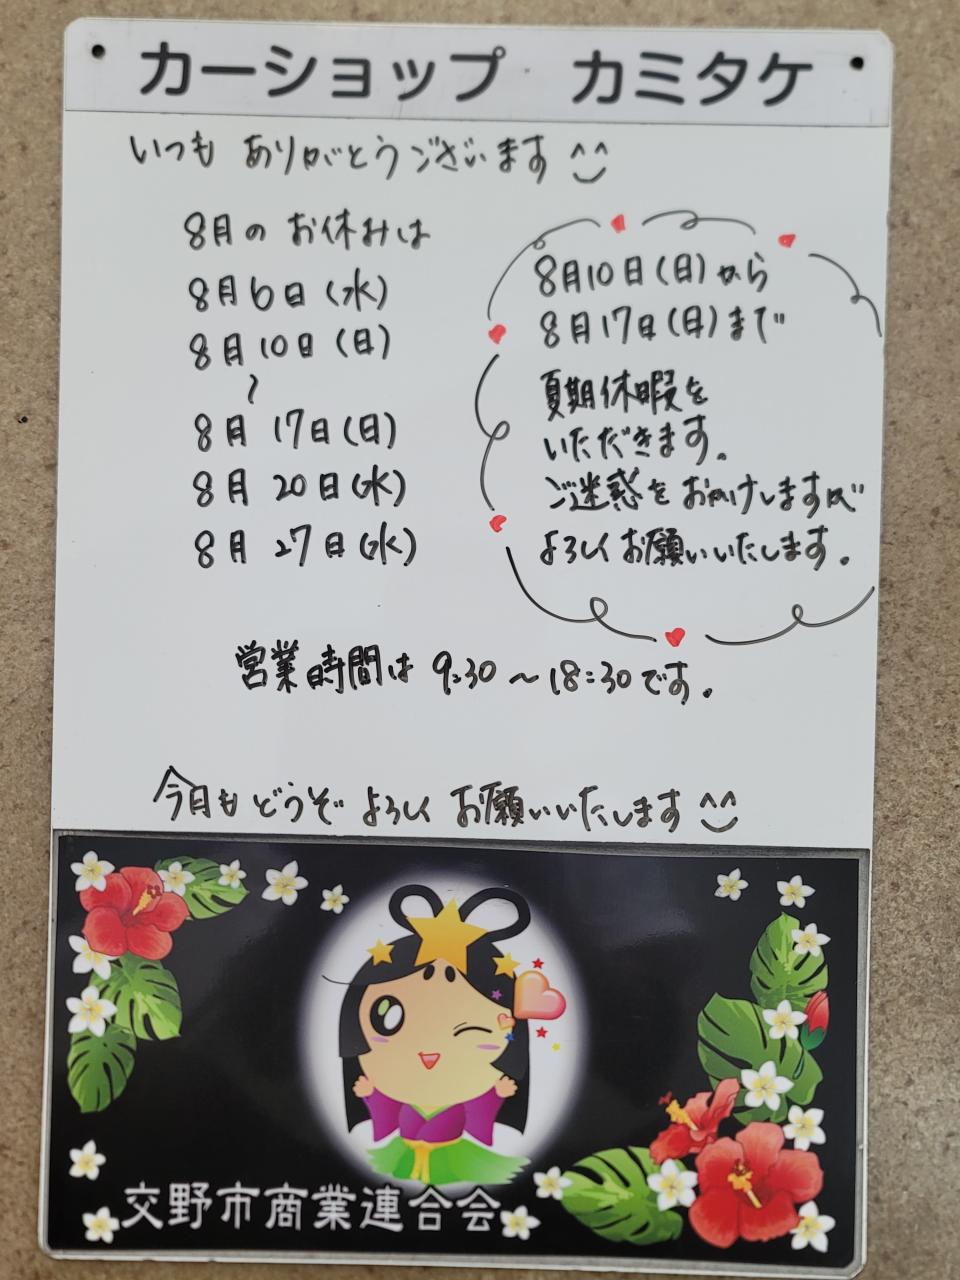 カーショップ カミタケ
いつも ありがとうございます
8月の お休みは
8月6日(水)
8月10日(日)
〜
8月17日(日)
8月20日(水)
8月27日(水)
8月10日(日)から
8月17日(日)まで
夏期休暇を
いただきます。
ご迷惑をおかけしますが
よろしくお願いいたします。
営業時間は 9:30〜18:30です。
今月も どうぞ よろしく お願いいたします
交野市商業連合会